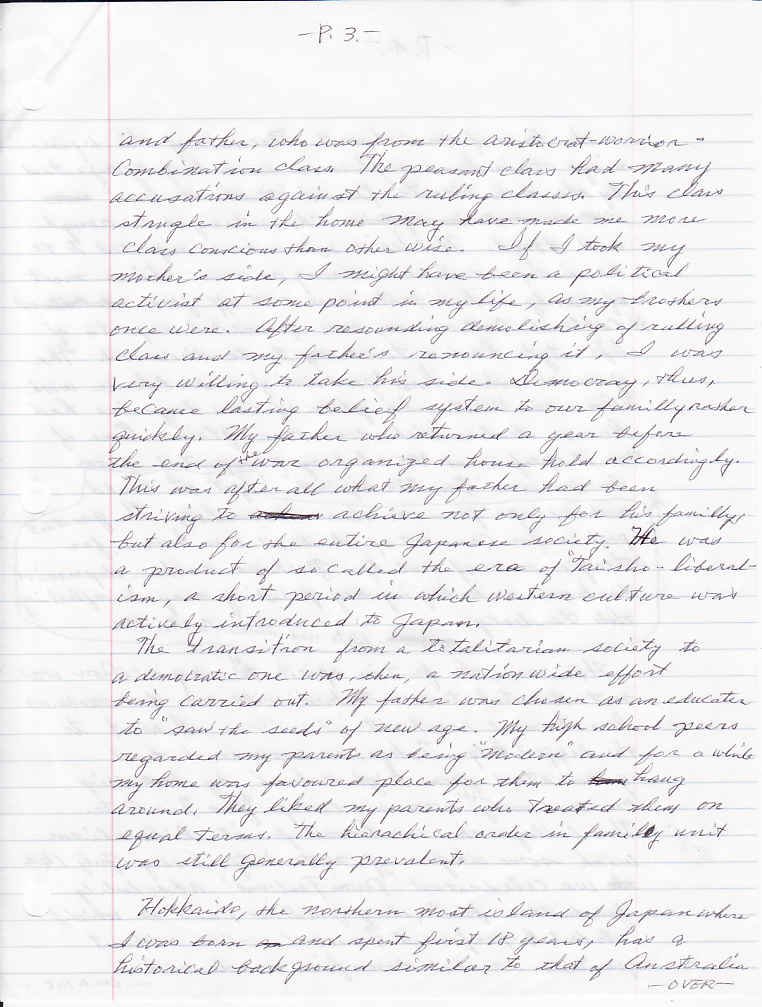 -P. 3.-
and father, who was from the aristocrat-worrior-
Combination class. The peasant class had many
accusations against the ruling classes. This class
struggle in the home may have made me more
class conscious than other wise. If I took my
mother's side, I might have been a political
activist at some point in my life, as my brothers
once were. After resounding demolishing of rulling
class and my father's renouncing it, I was
very willing to take his side. Democray, thus,
became lasting belief system to our familly rather
quickly. My father who returned a year before
the end of the war organized house hold accordingly.
This was after all what my father had been
striving to achieve not only for his familly,
but also for the entire Japanese society. He was
a product of so called the era of "Taisho-liberal-
ism, a short period in which western culture was
actively introduced to Japan.
The transition from a totalitarian society to
a democratic one was, then, a nation wide effort
being carried out. My father was chosen as an educater
to "saw the seeds" of new age. My high school peers
regarded my parents as being "modern" and for a while
my home was favoured place for them to hang
around. They liked my parents who treated them on
equal terms. The hierachical order in family unit
was still generally prevalent.
Hokkaido, the northern most island of Japan where
I was born and spent first 18 years, has a
historical background similar to that of Australia
-OVER-